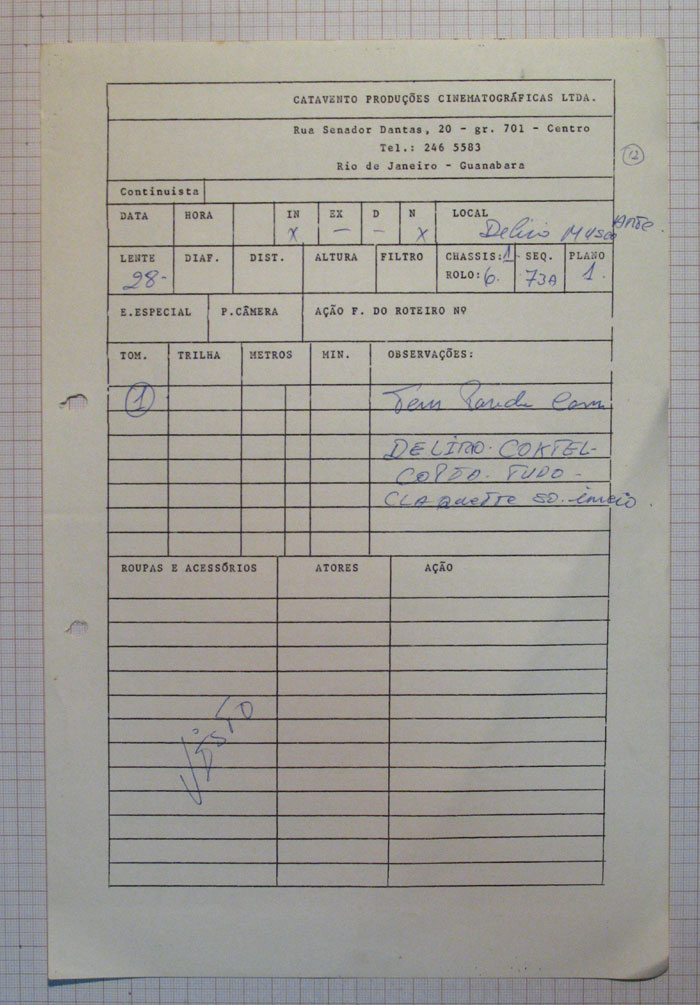 CATAVENTO PRODUÇÕES CINEMATOGRÁFICAS LTDA.
Rua Senador Dantas, 20 - gr. 701 - Centro
Tel.: 246 5583
Rio de Janeiro - Guanabara
12
Continuista
DATA HORA IN EX D N LOCAL
X — — X Delirio
LENTE DIAF. DIST. ALTURA FILTRO CHASSIS: 1 SEQ. PLANO
28- ROLO: 6. 73A 1.
E.ESPECIAL P.CÂMERA AÇÃO F. DO ROTEIRO Nº
TOM. TRILHA METROS MIN. OBSERVAÇÕES:
1 Tem
DELIRIO. COKTEL-
COPIA. TUDO-
CLAquette so. inicio.
ROUPAS E ACESSÓRIOS ATORES AÇÃO
VISTO